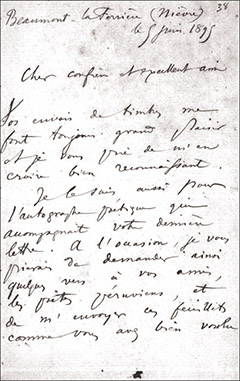 38
Beaumont la Ferrière (Nièvre)
le 5 juin 1895
Cher confrère et excellent ami
Vos envois de timbres me
font toujours grand plaisir
et je vous prie de m'en
croire bien reconnaissant.
Je le suis aussi pour
l'autographe poétique qui
acompagnait votre dernière
lettre. A l'occasion, je vous
prierais de demander ainsi
quelques vers à vos amis,
les poëtes péruviens, et
de m'envoyer ces feuillets
comme vous avez bien voulu